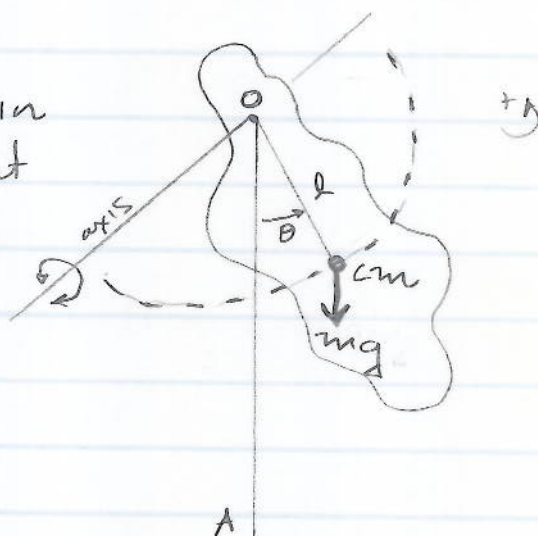 in
t
O
axis
l
θ
cm
mg
A